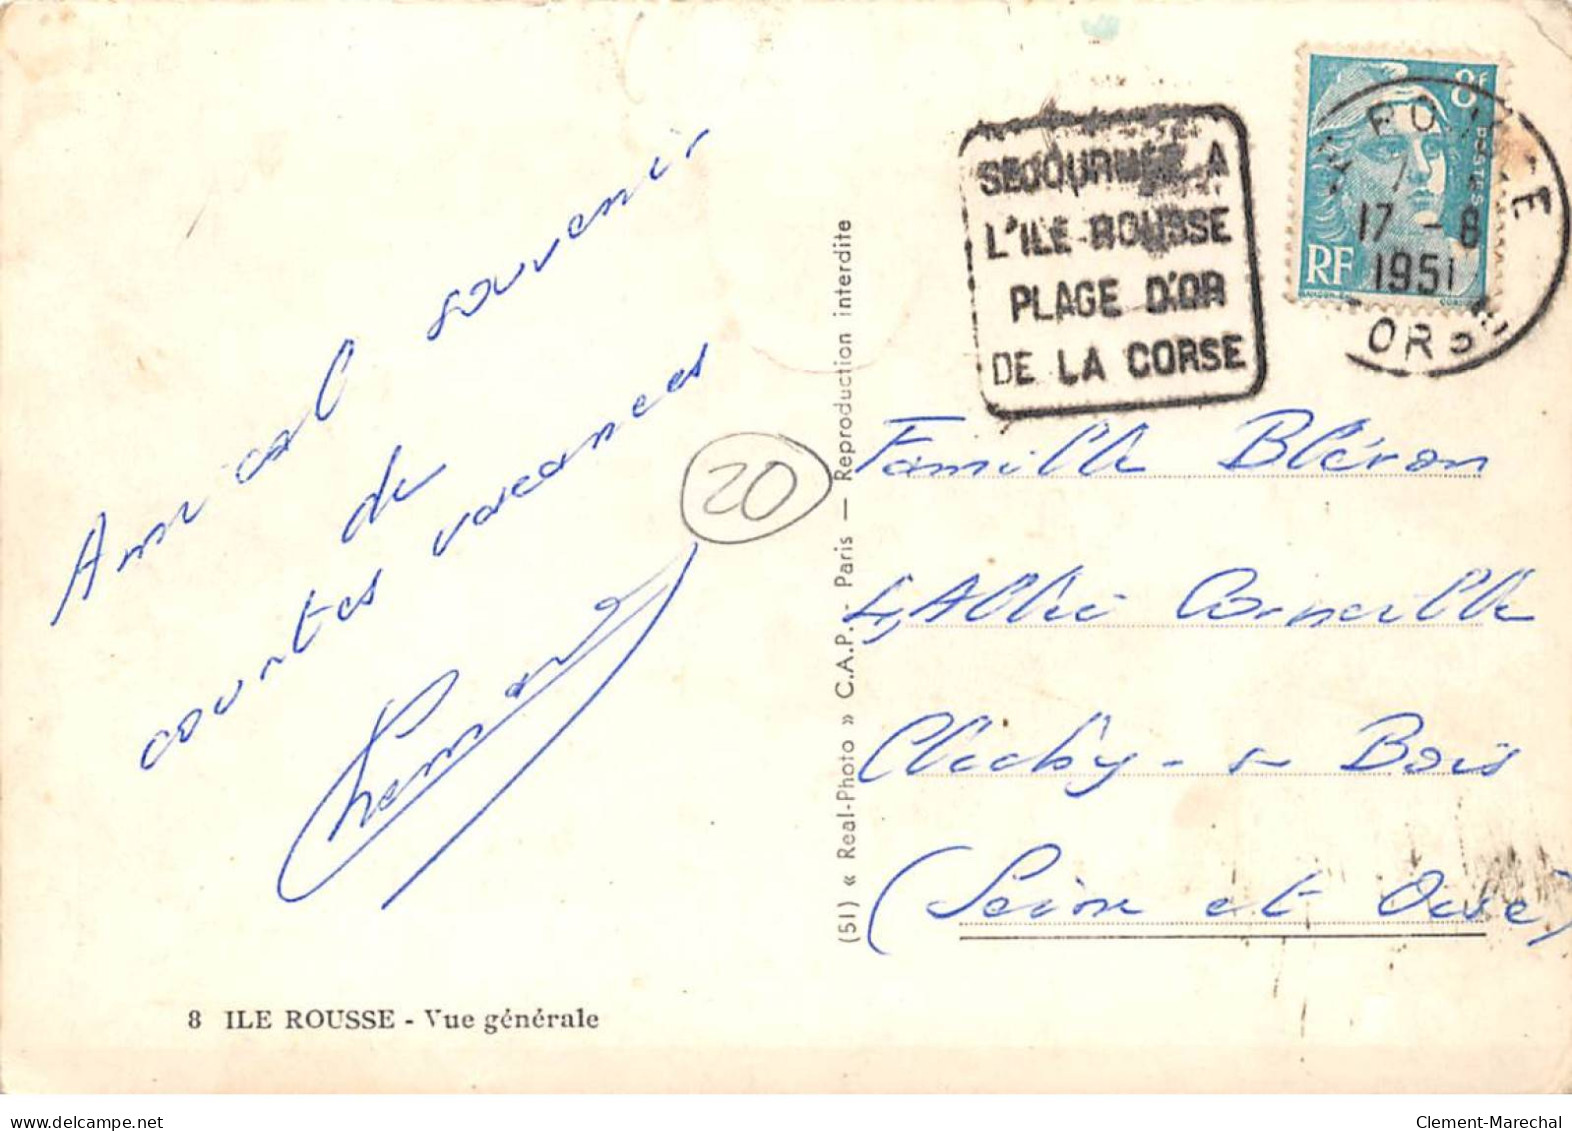 Amical souvenir
de
courtes vacances
20
8 ILE ROUSSE - Vue générale
(51) « Real-Photo » C.A.P. - Paris — Reproduction interdite
SEJOURNEZ A
L'ILE ROUSSE
PLAGE D'OR
DE LA CORSE
8F
POSTES
RF
ROUSSE
17 - 8
1951
CORSE
Famille Bléron
4, Allée Corneille
Clichy-s-Bois
(Seine et Oise)
delcampe.net
Clement-Marechal